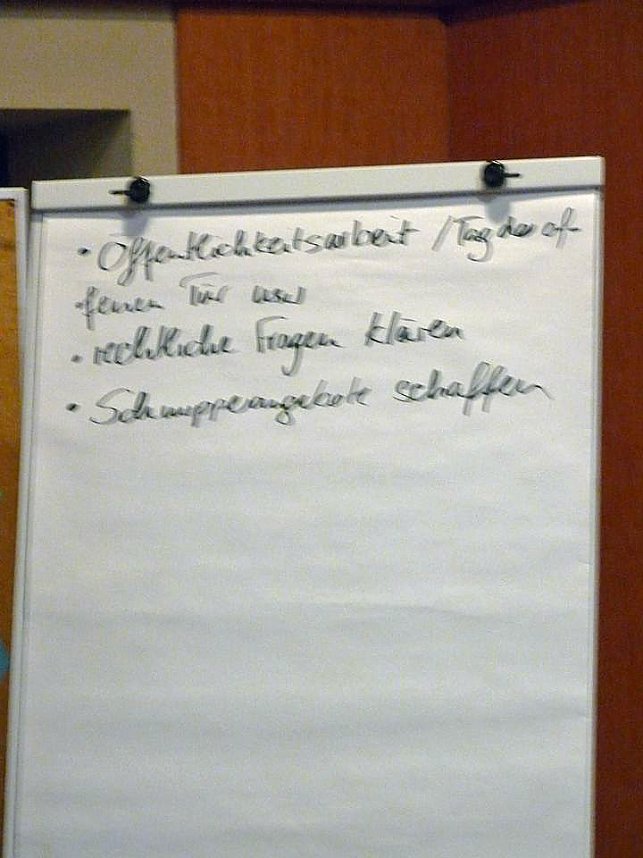 • Öffentlichkeitsarbeit / Tag der of-
fenen Tür usw
• rechtliche Fragen klären
• Schnupperangebote schaffen